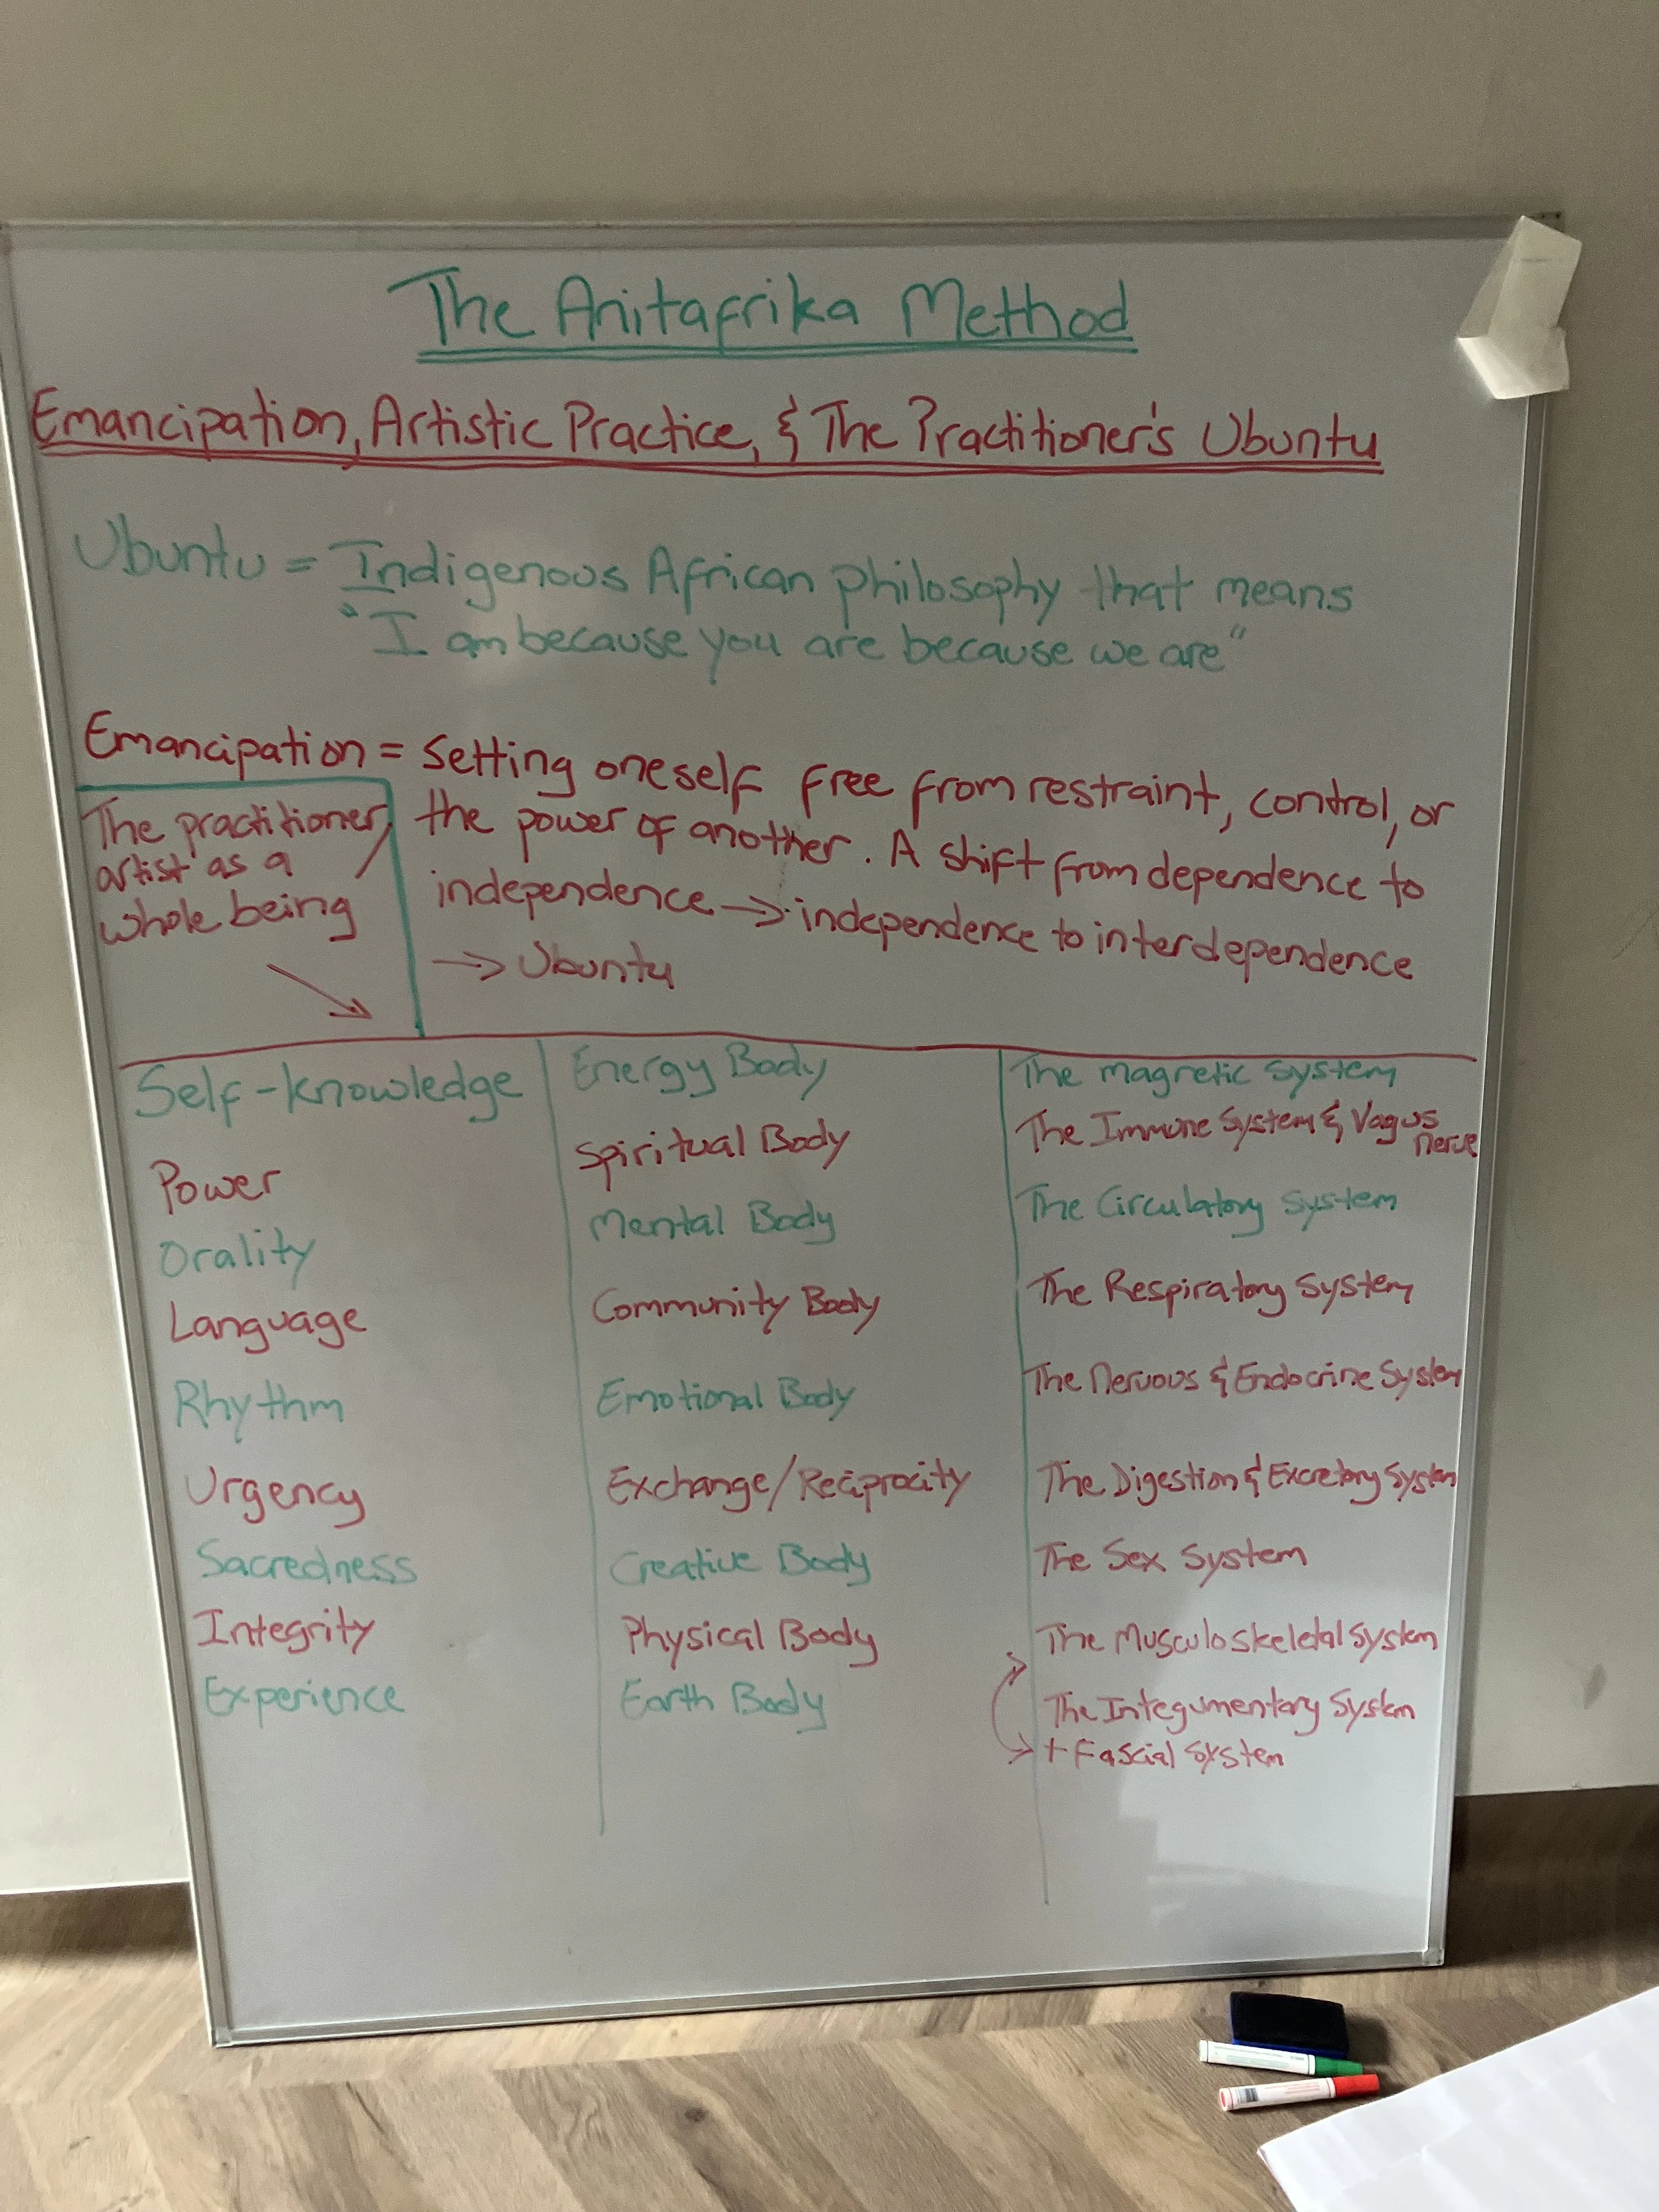 The Anitafrika Method
Emancipation, Artistic Practice, & The Practitioner's Ubuntu
Ubuntu = Indigenous African philosophy that means
"I am because you are because we are"
Emancipation = Setting oneself free from restraint, control, or
the power of another. A shift from dependence to
independence → independence to interdependence
→ Ubuntu
The practitioner/
artist as a
whole being
Self-knowledge
Power
Orality
Language
Rhythm
Urgency
Sacredness
Integrity
Experience
Energy Body
Spiritual Body
Mental Body
Community Body
Emotional Body
Exchange/Reciprocity
Creative Body
Physical Body
Earth Body
The Magnetic System
The Immune System & Vagus
nerve
The Circulatory System
The Respiratory System
The Nervous & Endocrine System
The Digestion & Excretory System
The Sex System
The Musculoskeletal System
The Integumentary System
+ Fascial System